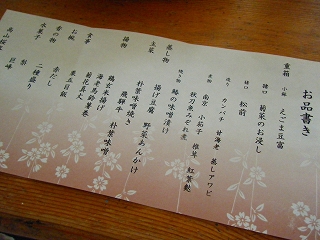 お品書き
重箱 小鉢 えごま豆富
猪口 菊菜のお浸し
猪口 松前
造り カンパチ 甘海老 蒸しアワビ
煮物 南京 小茄子 椎茸 紅葉麩
秋刀魚みぞれ煮
焼き物 鰆の味噌漬け
蒸し物 揚げ豆腐 野菜あんかけ
主菜 朴葉味噌焼き
飛騨牛 朴葉味噌
揚物 鶏玄米揚げ
海老馬鈴薯巻
菊花真丈
食事 栗五目飯
お椀 赤だし
香の物 二種盛り
水菓子 梨 巨峰